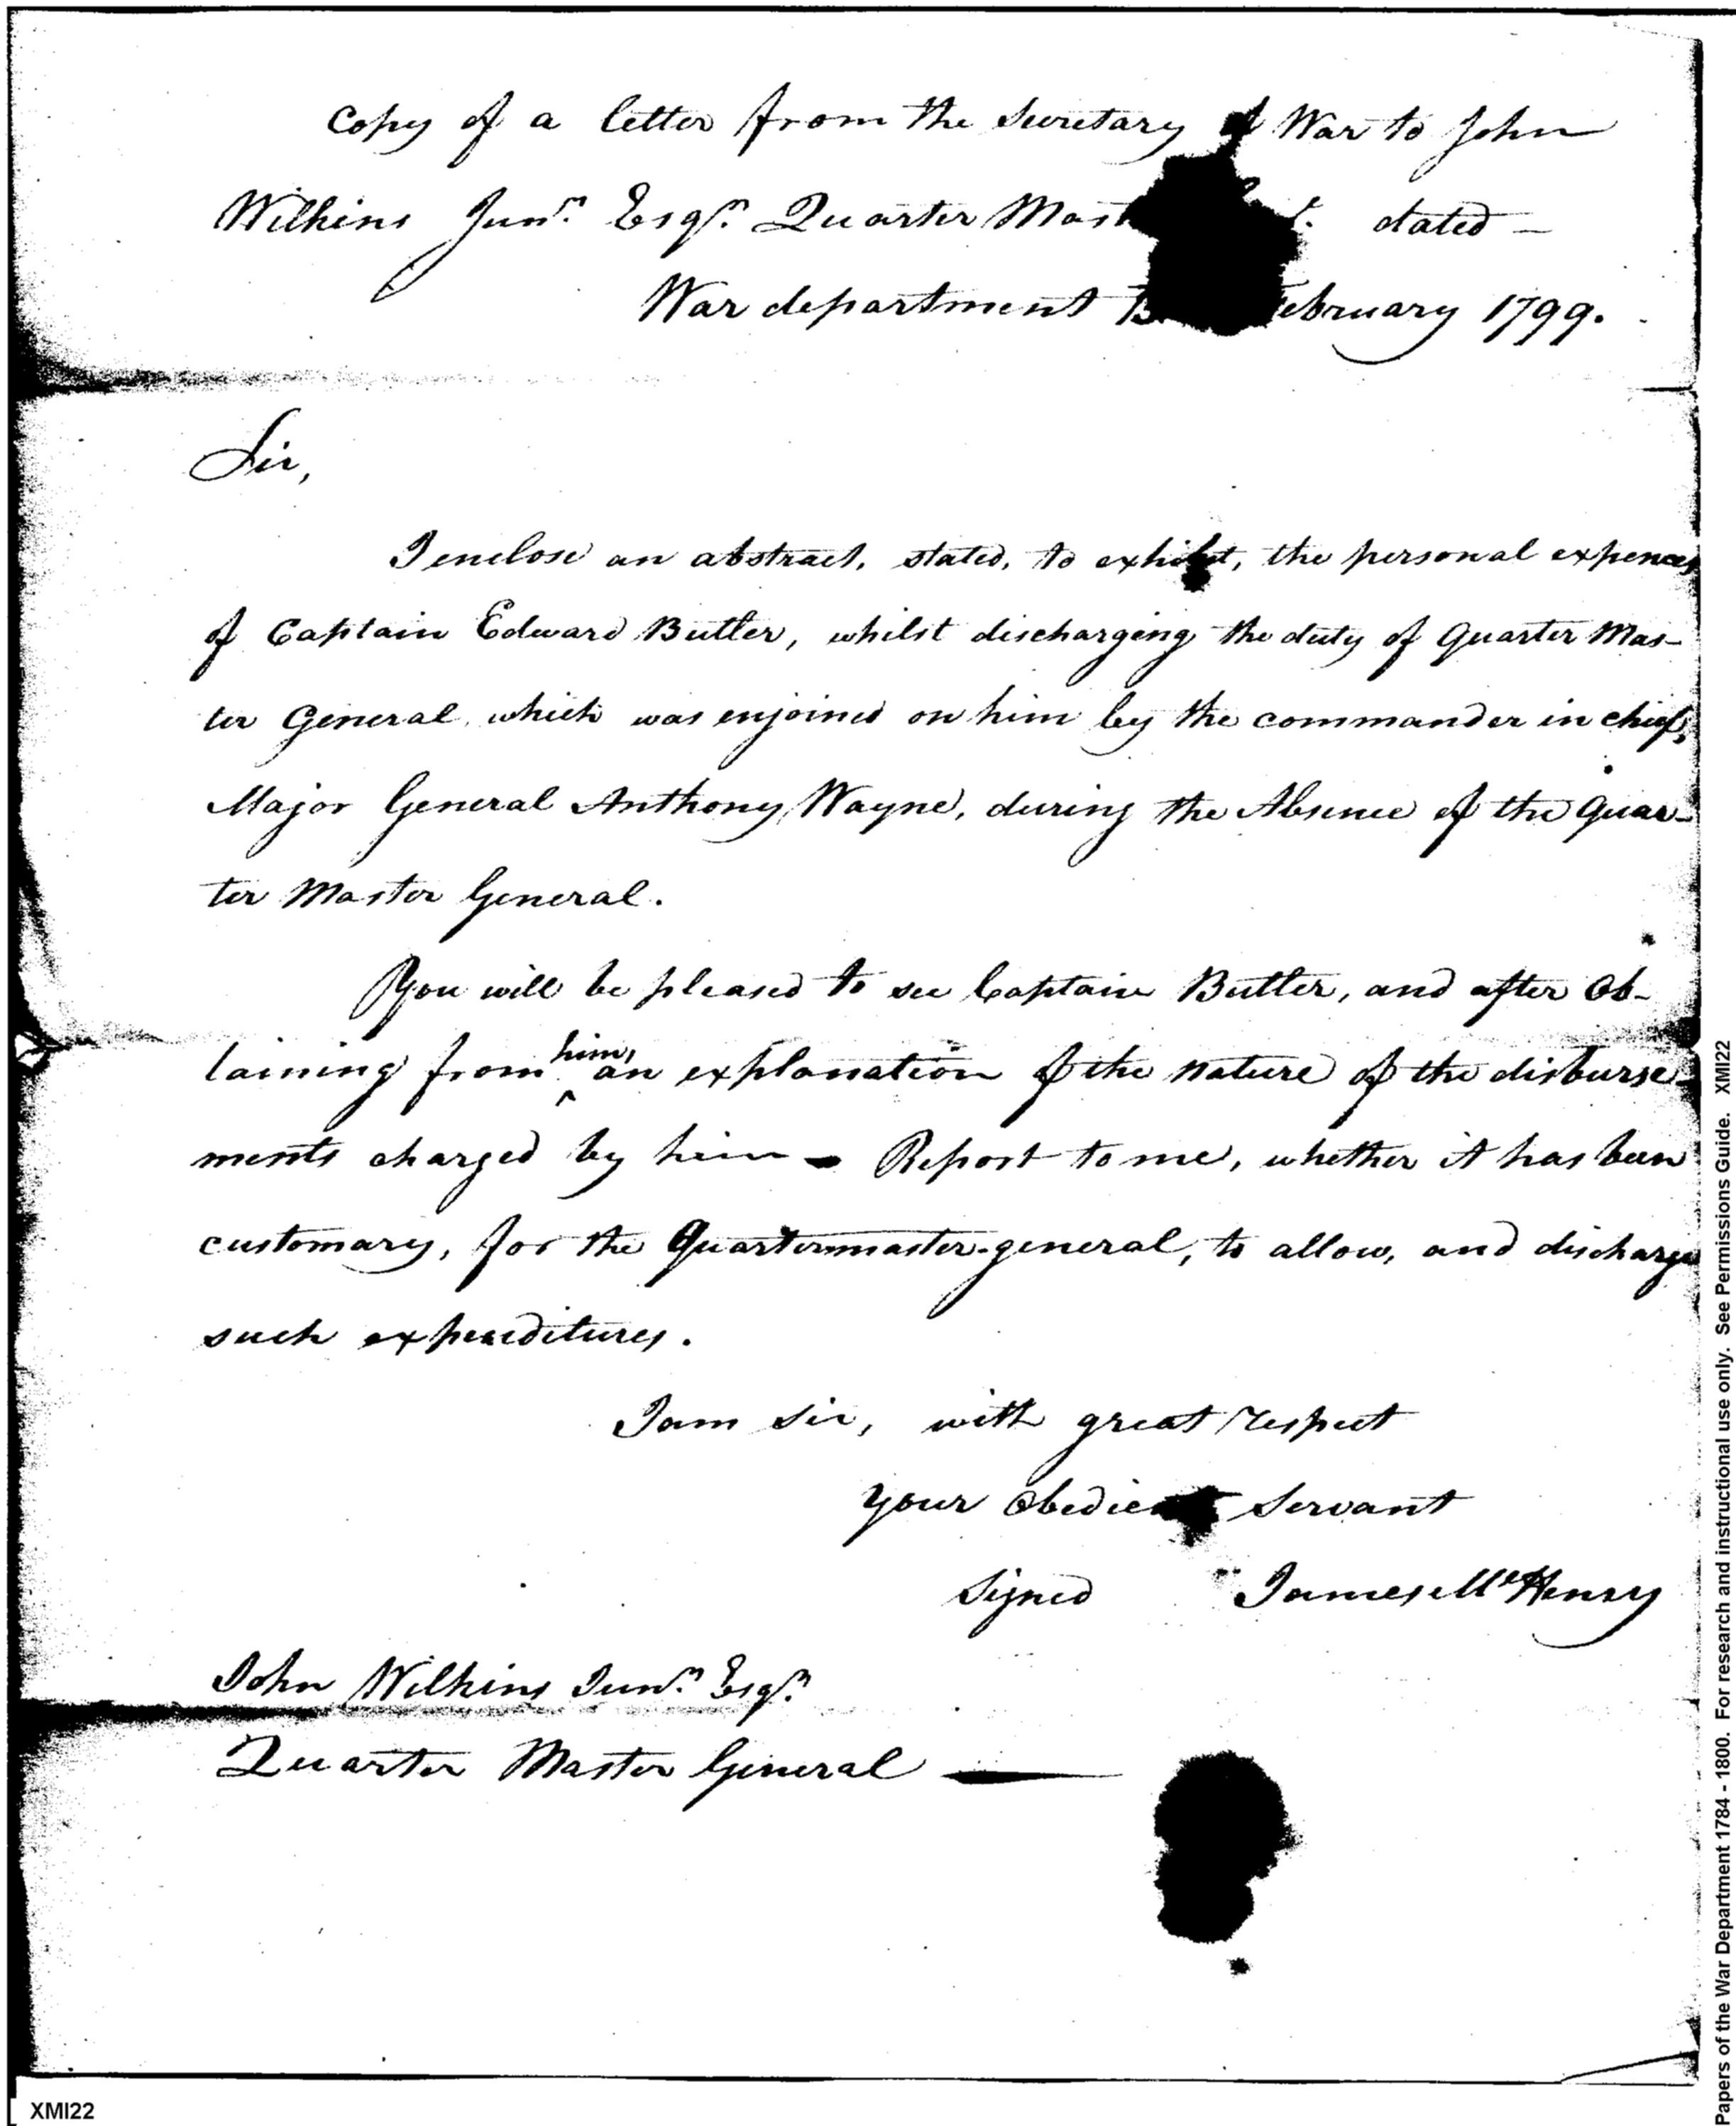 Copy of a letter from the Secretary of War to John
Wilkins Junr. Esqr. Quarter dated —
War department February 1799.
Sir,
I enclose an abstract, stated, to exhibit, the personal expences
of Captain Edward Butler, whilst discharging the duty of Quarter Mas-
ter General, which was enjoined on him by the commander in chief,
Major General Anthony Wayne, during the Absence of the Quar-
ter Master General.
You will be pleased to see Captain Butler, and after Ob-
taining from him, an explanation of the nature of the disburse-
ments charged by him – Report to me, whether it has been
customary, for the Quartermaster-general, to allow, and discharge
such expenditures.
I am Sir, with great respect
your Obedient Servant
Signed James McHenry
John Wilkins Junr. Esqr.
Quarter Master General —
XMI22
Papers of the War Department 1784 - 1800. For research and instructional use only. See Permissions Guide. XMI22